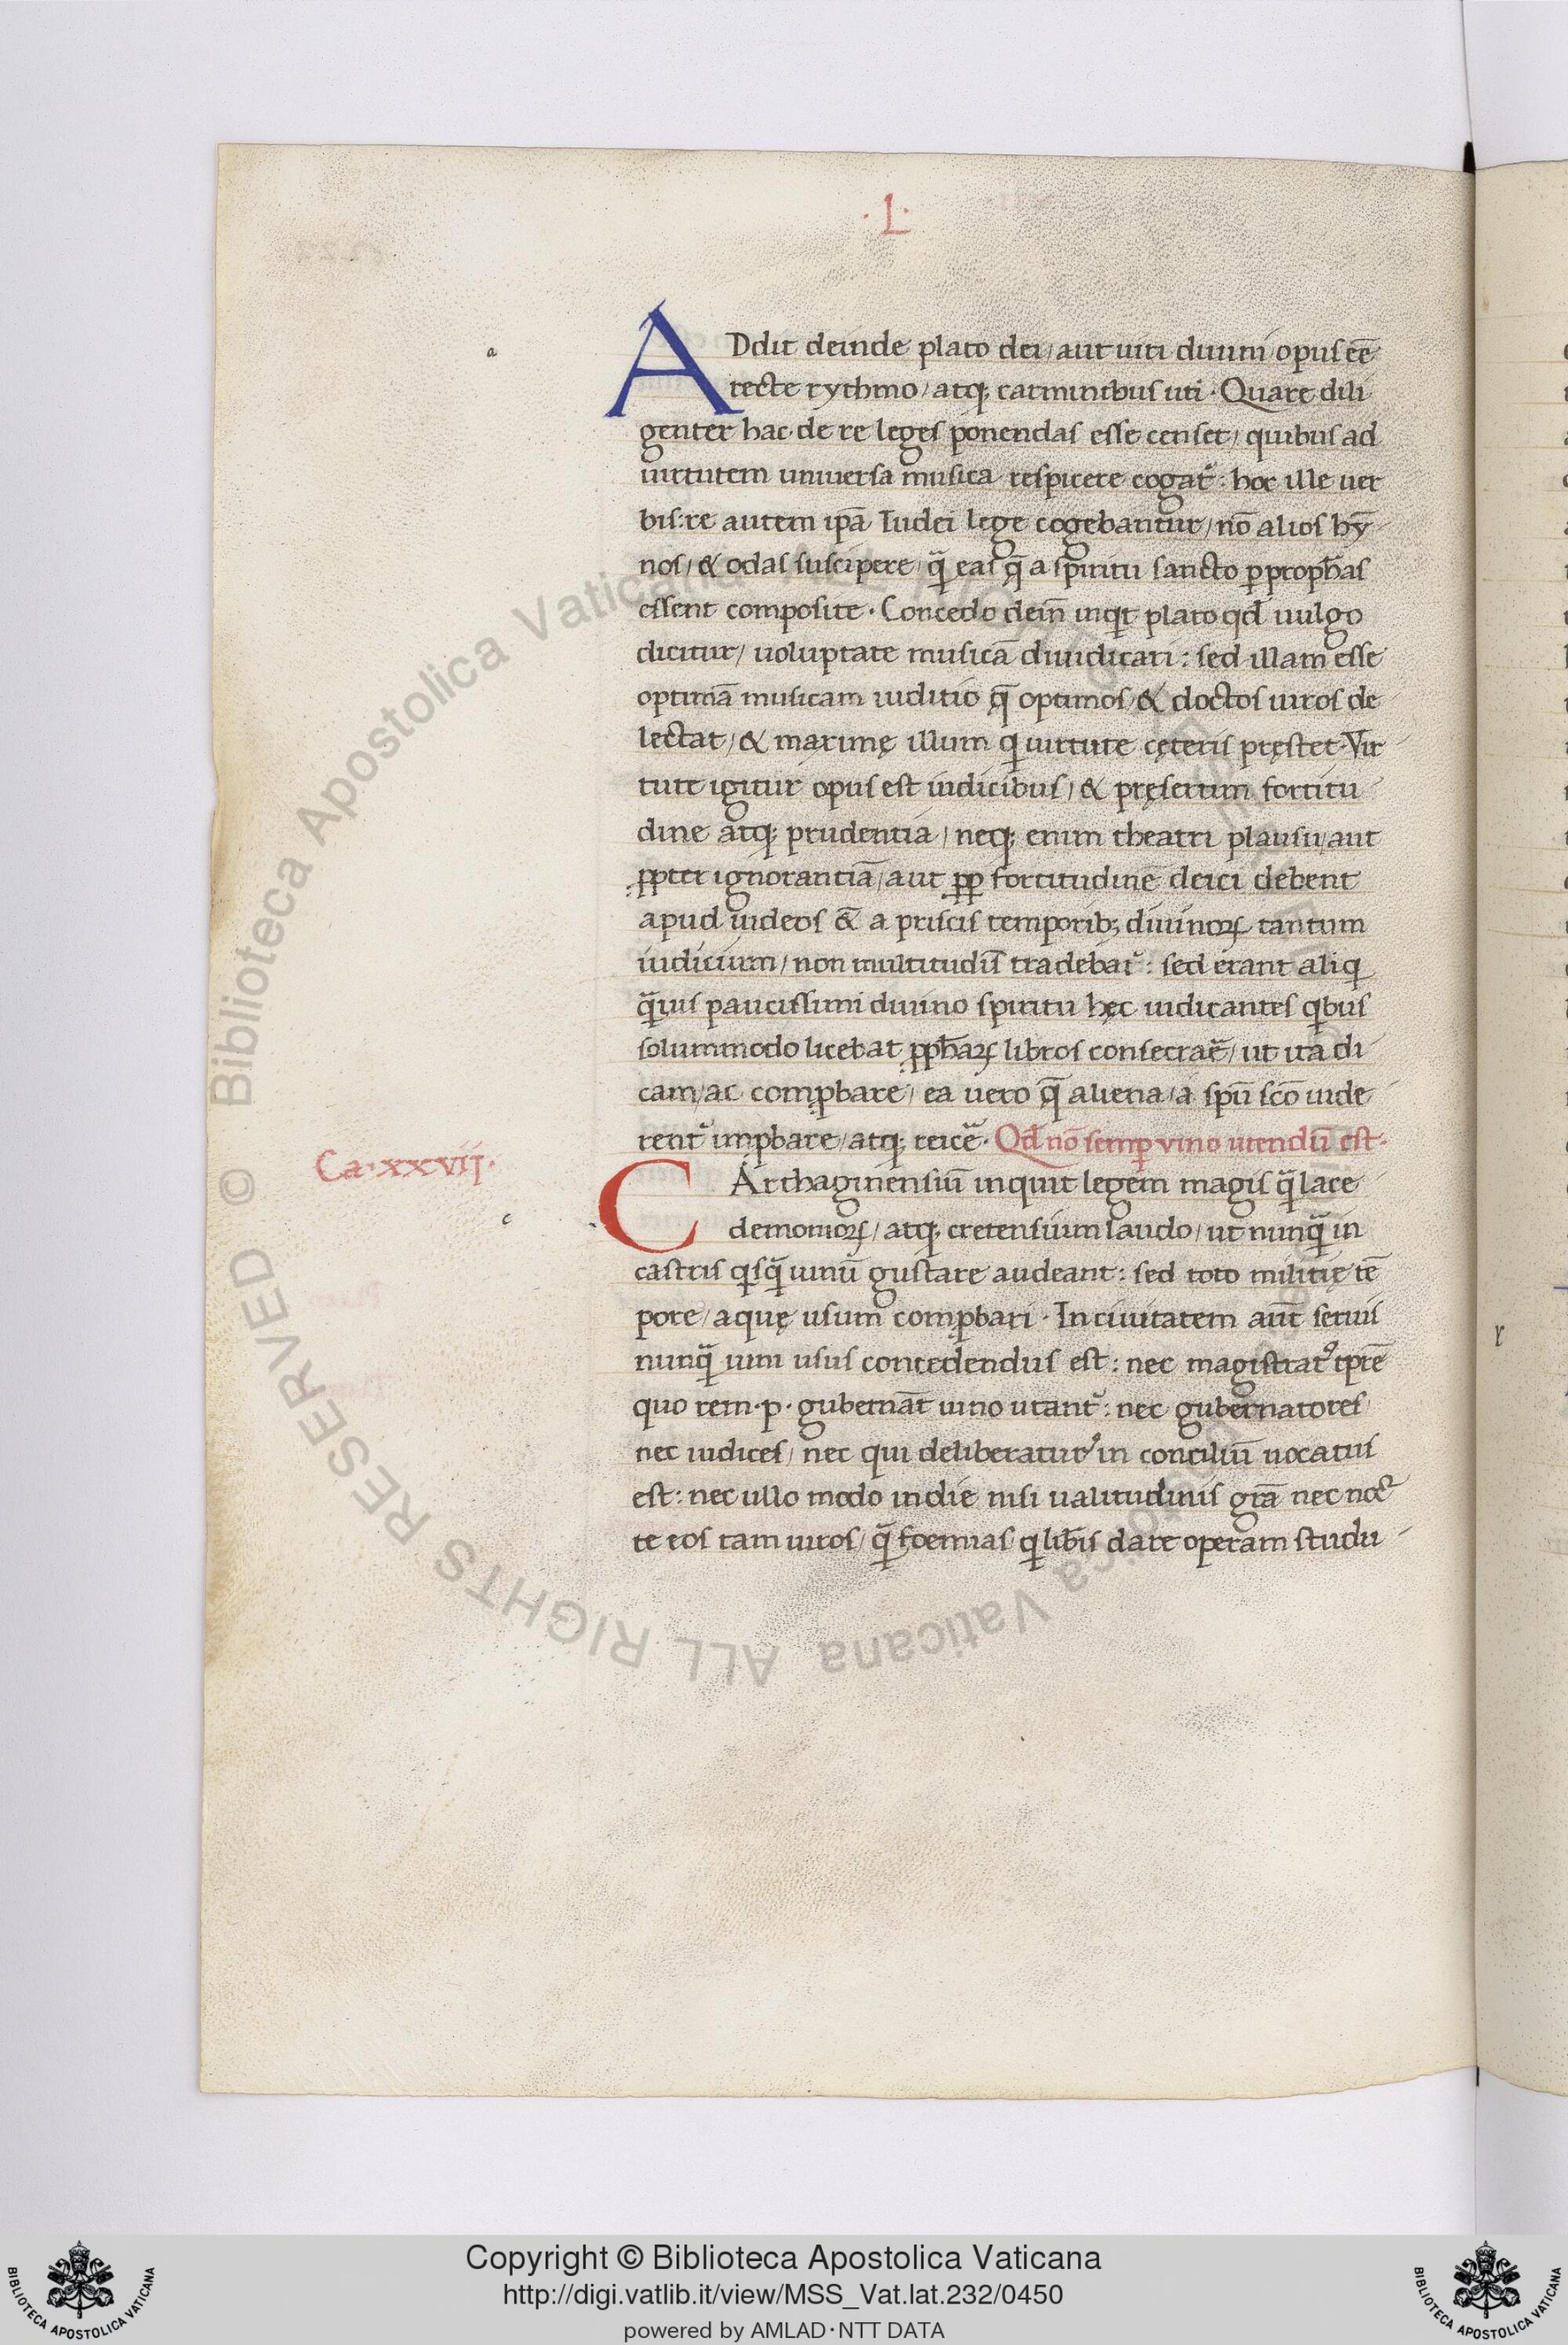 ·L·
a
ADdit deinde plato dei/aut uiri diuini opus eē
recte rythmo/atq; carminibus uti·Quare dili
genter hac de re leges ponendas esse censet/quibus ad
uirtutem uniuersa musica respicere cogat᷑: hoc ille uer
bis:re autem ip̄a Iudei lege cogebantur/nō alios hȳ
nos/& odas suscipere/q̄ eas q̄ a spiritu sancto ꝑ proph̄as
essent composite·Concedo dein̄ inqͥt plato qd̄ uulgo
dicitur/uoluptate musicā diiudicari: sed illam esse
optimā musicam iuditio q̄ optimos/& doctos uiros de
lectat/& maximę illum qͥ uirtute cęteris pręstet·Vir
tute igitur opus est iudicibus/& pręsertim fortitu
dine atq; prudentia/neq; enim theatri plausu/aut
ꝓpter ignorantiā/aut ꝓꝑ fortitudinē deici debent
apud iudeos & a priscis temporib; diuinoꝝ tantum
iudicium/non multitudīs tradebat᷑: sed erant aliqͥ
q̄uis paucissimi diuino spiritu hęc iudicantes qͥbus
solummodo licebat ꝓph̄aꝝ libros consecrar̄e/ut ita di
cam/ac comꝓbare/ea uero q̄ aliena/a spū scō uide
rent᷑ imꝓbare/atq; reicer̄e·Qd̄ nō semꝑ vino utendū est·
Ca·xxvij·
c
CArthaginensiū inquit legem magis q̄ lace
demonioꝝ/atq; cretensium laudo/ut nunq̄ in
castris qͥsq̄ uinū gustare audeant: sed toto militię tē
pore/aquę usum comꝓbari·In ciuitatem aūt seruis
nunq̄ uini usus concedendus est: nec magistratꝰ tp̄re
quo rem·p·gubernāt uino utant᷑: nec gubernatores
nec iudices/nec qui deliberaturꝰ in conciliū uocatus
est: nec ullo modo in die nisi ualitudinis grā nec noc
te eos tam uiros/q̄ foeminas/qͥ lib̄is dare operam studu
r
© Biblioteca Apostolica Vaticana ALL RIGHTS RESERVED
Copyright © Biblioteca Apostolica Vaticana
http://digi.vatlib.it/view/MSS_Vat.lat.232/0450
powered by AMLAD·NTT DATA
BIBLIOTECA APOSTOLICA VATICANA
BIBLIOTECA APOSTOLICA VATICANA